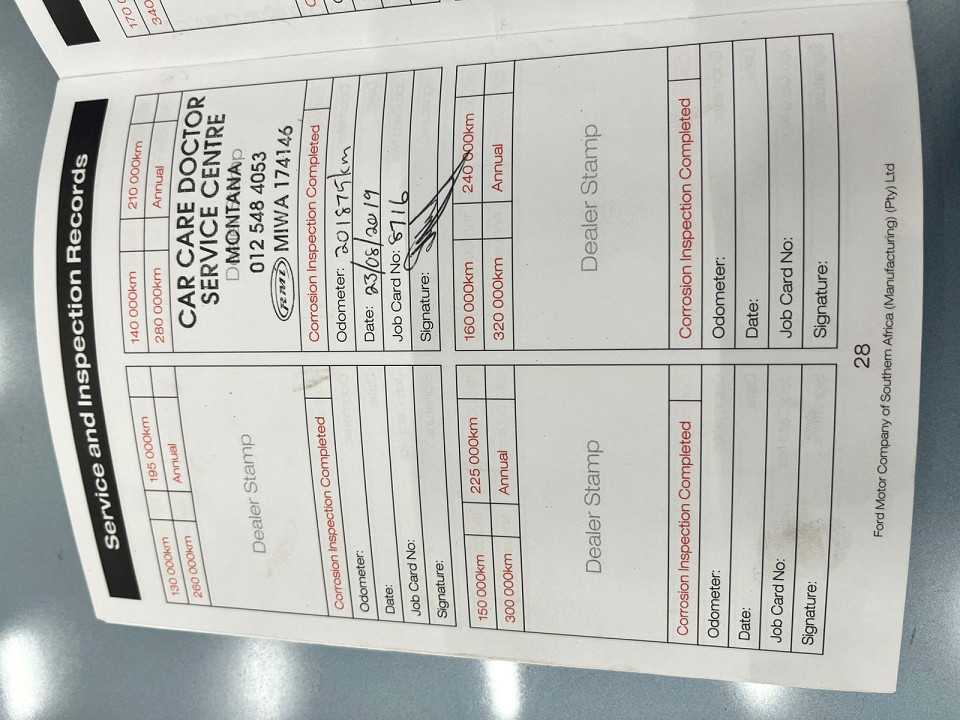 170 0
340
Service and Inspection Records
130 000km 195 000km
260 000km Annual
Dealer Stamp
Corrosion Inspection Completed
Odometer:
Date:
Job Card No:
Signature:
140 000km 210 000km
280 000km Annual
CAR CARE DOCTOR
SERVICE CENTRE
MONTANA
012 548 4053
RMI MIWA 174146
Corrosion Inspection Completed
Odometer: 201879km
Date: 23/08/2019
Job Card No: 8716
Signature:
150 000km 225 000km
300 000km Annual
Dealer Stamp
Corrosion Inspection Completed
Odometer:
Date:
Job Card No:
Signature:
160 000km 240 000km
320 000km Annual
Dealer Stamp
Corrosion Inspection Completed
Odometer:
Date:
Job Card No:
Signature:
28
Ford Motor Company of Southern Africa (Manufacturing) (Pty) Ltd